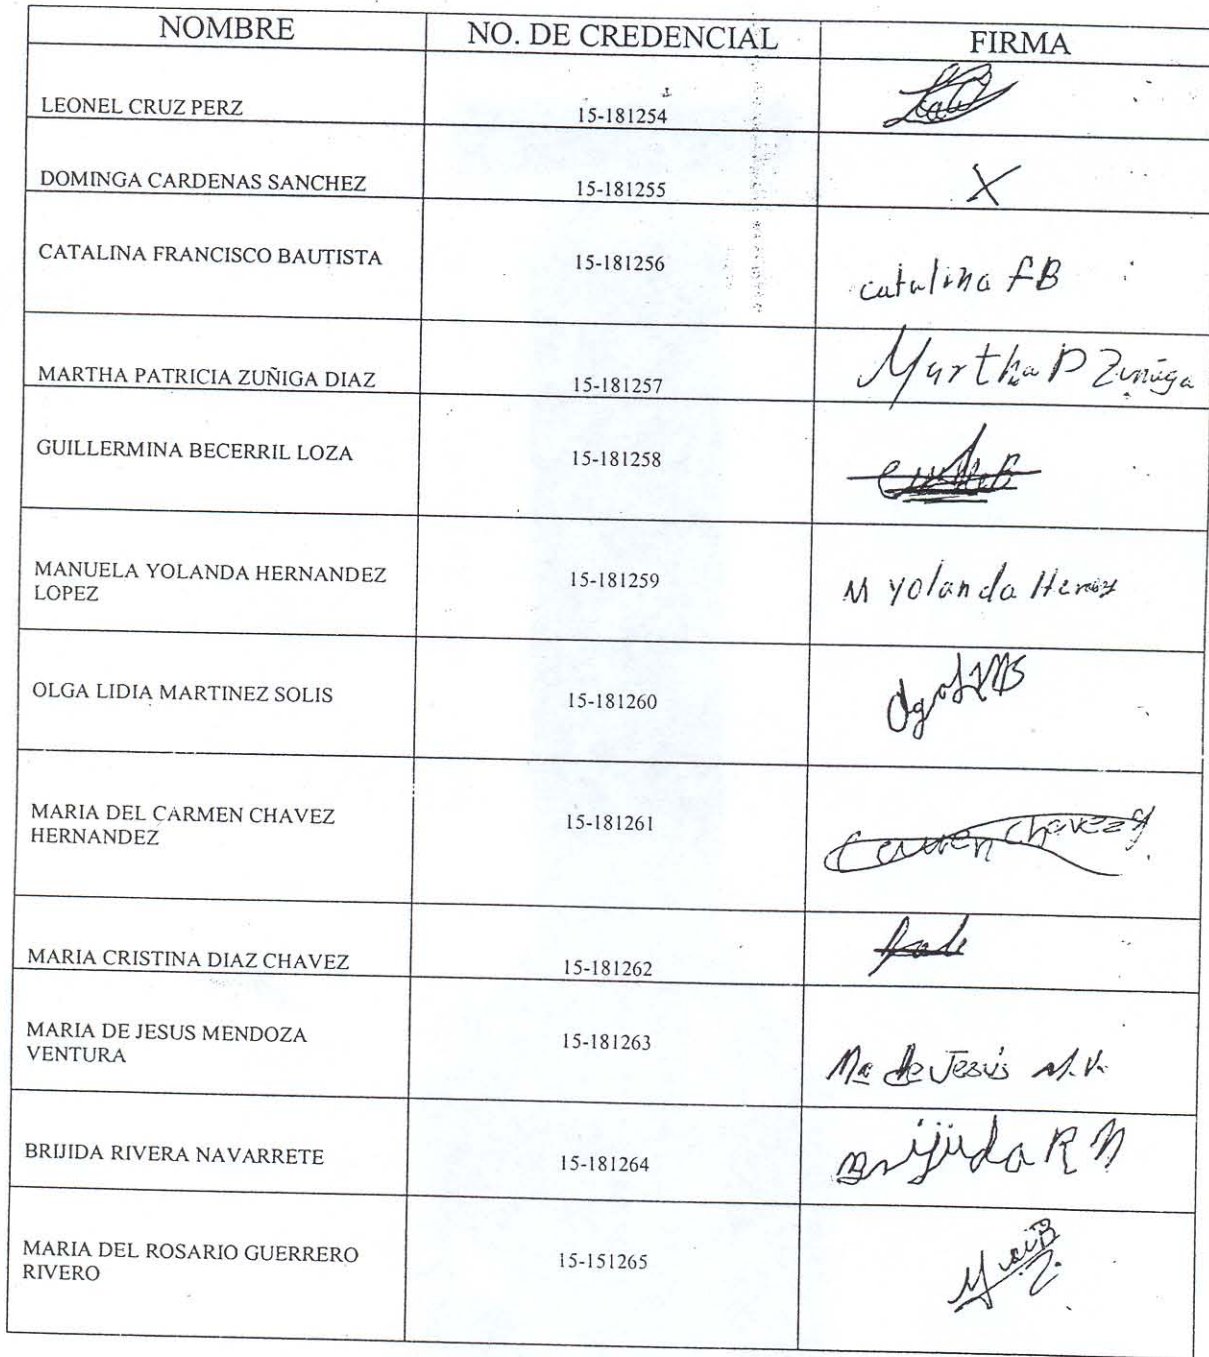 NOMBRE NO. DE CREDENCIAL FIRMA
LEONEL CRUZ PERZ 15-181254
DOMINGA CARDENAS SANCHEZ 15-181255 X
CATALINA FRANCISCO BAUTISTA 15-181256 catalina FB
MARTHA PATRICIA ZUÑIGA DIAZ 15-181257 Martha P Zuñiga
GUILLERMINA BECERRIL LOZA 15-181258
MANUELA YOLANDA HERNANDEZ
LOPEZ 15-181259 M yolanda
OLGA LIDIA MARTINEZ SOLIS 15-181260
MARIA DEL CARMEN CHAVEZ
HERNANDEZ 15-181261 Carmen Chavez
MARIA CRISTINA DIAZ CHAVEZ 15-181262
MARIA DE JESUS MENDOZA
VENTURA 15-181263 Ma de Jesús M.V.
BRIJIDA RIVERA NAVARRETE 15-181264 Brijida R N
MARIA DEL ROSARIO GUERRERO
RIVERO 15-151265